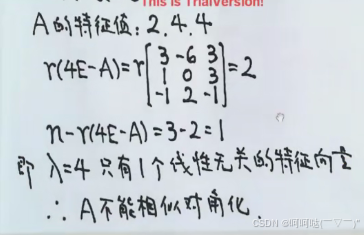 This is Trialversion!
A的特征值:2.4.4
r(4E-A)=r[3 -6 3
1 0 3
-1 2 -1]=2
n-r(4E-A)=3-2=1
即 λ=4 只有1个线性无关的特征向量
∴ A不能相似对角化.